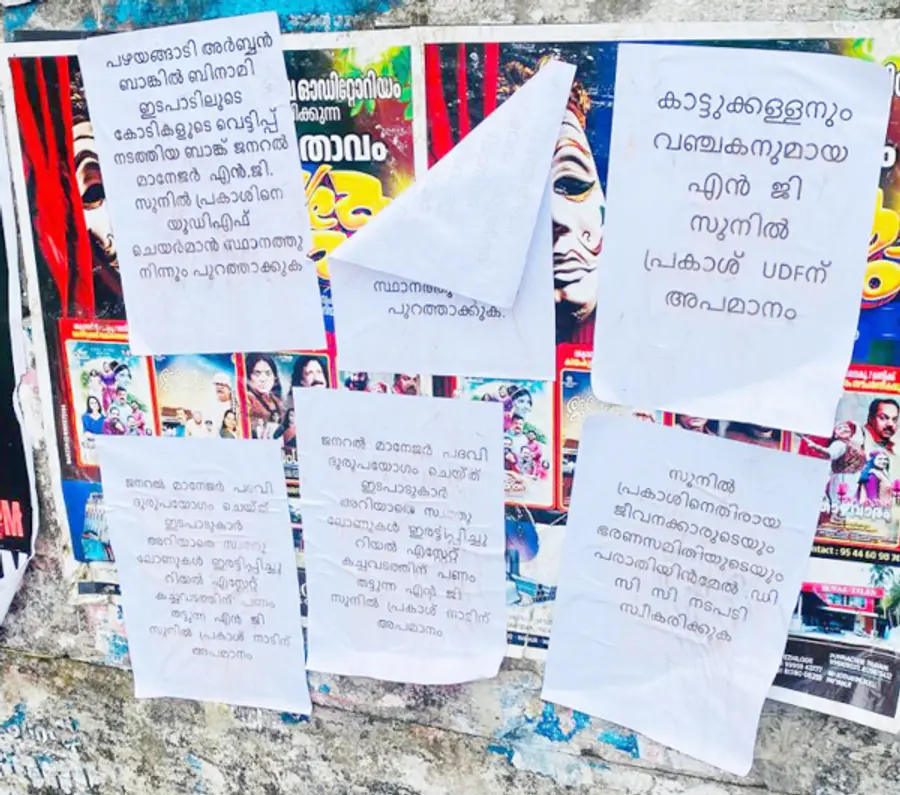 പഴയങ്ങാടി അർബ്ബൻ
ബാങ്കിൽ ബിനാമി
ഇടപാടിലൂടെ
കോടികളുടെ വെട്ടിപ്പ്
നടത്തിയ ബാങ്ക് ജനറൽ
മാനേജർ എൻ.ജി.
സുനിൽ പ്രകാശിനെ
യൂഡിഎഫ്
ചെയർമാൻ സ്ഥാനത്തു
നിന്നും പുറത്താക്കുക
ഓഡിറ്റോറിയം
സ്ഥാനത്തു
പുറത്താക്കുക.
കാട്ടുക്കള്ളനും
വഞ്ചകനുമായ
എൻ ജി
സുനിൽ
പ്രകാശ് UDFന്
അപമാനം
ജനറൽ മാനേജർ പദവി
ദുരുപയോഗം ചെയ്ത്
ഇടപാടുകാർ
അറിയാതെ സ്വന്തു
ലോണുകൾ ഇരട്ടിപ്പിച്ചു
റിയൽ എസ്റ്റേറ്റ്
കച്ചവടത്തിന് പണം
തട്ടുന്ന എൻ ജി
സുനിൽ പ്രകാശ് നാടിന്
അപമാനം
ജനറൽ മാനേജർ പദവി
ദുരുപയോഗം ചെയ്ത്
ഇടപാടുകാർ
അറിയാതെ സ്വന്തു
ലോണുകൾ ഇരട്ടിപ്പിച്ചു
റിയൽ എസ്റ്റേറ്റ്
കച്ചവടത്തിന് പണം
തട്ടുന്ന എൻ ജി
സുനിൽ പ്രകാശ് നാടിന്
അപമാനം
സുനിൽ
പ്രകാശിനെതിരായ
ജീവനക്കാരുടെയും
ഭരണസമിതിയുടെയും
പരാതിയിൻമേൽ ഡി
സി സി നടപടി
സ്വീകരിക്കുക